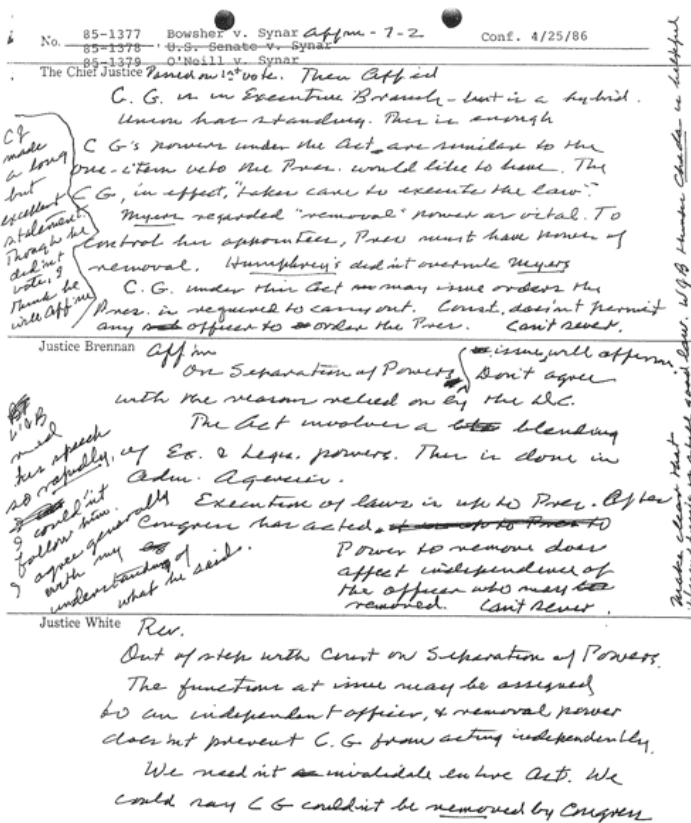 No. 85-1377 Bowsher v. Synar Affirm - 7-2 Conf. 4/25/86
85-1378 U.S. Senate v. Synar
85-1379 O'Neill v. Synar
The Chief Justice Passed on 1st vote. Then Aff'ed
C.G. is in Executive Branch - but is a hybrid.
Union has standing. This is enough
C G's powers under the Act, are similar to the
one-item veto the Pres. would like to have. The
C G, in effect, "takes care to execute the law".
Myers regarded "removal" power as vital. To
control his appointees, Pres must have power of
removal. Humphrey's didn't overrule Myers
C.G. under this Act may issue orders the
Pres. is required to carry out. Const. doesn't permit
any officer to order the Pres. Can't sever.
CJ
made
a long
but
excellent
statement.
Though he
didn't
vote, I
think he
will Affirm
Justice Brennan Aff'm
On Separation of Powers issue, will affirm.
Don't agree
with the reason relied on by the D.C.
The Act involves a blending
of Ex. & Legis. powers. This is done in
Adm. Agencies.
Execution of laws is up to Pres. After
Congress has acted,
Power to remove does
affect independence of
the officer who may be
removed. Can't sever.
WJB
read
his speech
so rapidly,
I couldn't
follow him.
I agree generally
with my
understanding of
what he said.
make clear that
is still good law. WJB thinks Chadha is helpful
Justice White Rev.
Out of step with Court on Separation of Powers.
The functions at issue may be assigned
to an independent officer, & removal power
does not prevent C.G from acting independently.
We need n't invalidate entire Act. We
could say C G couldn't be removed by Congress